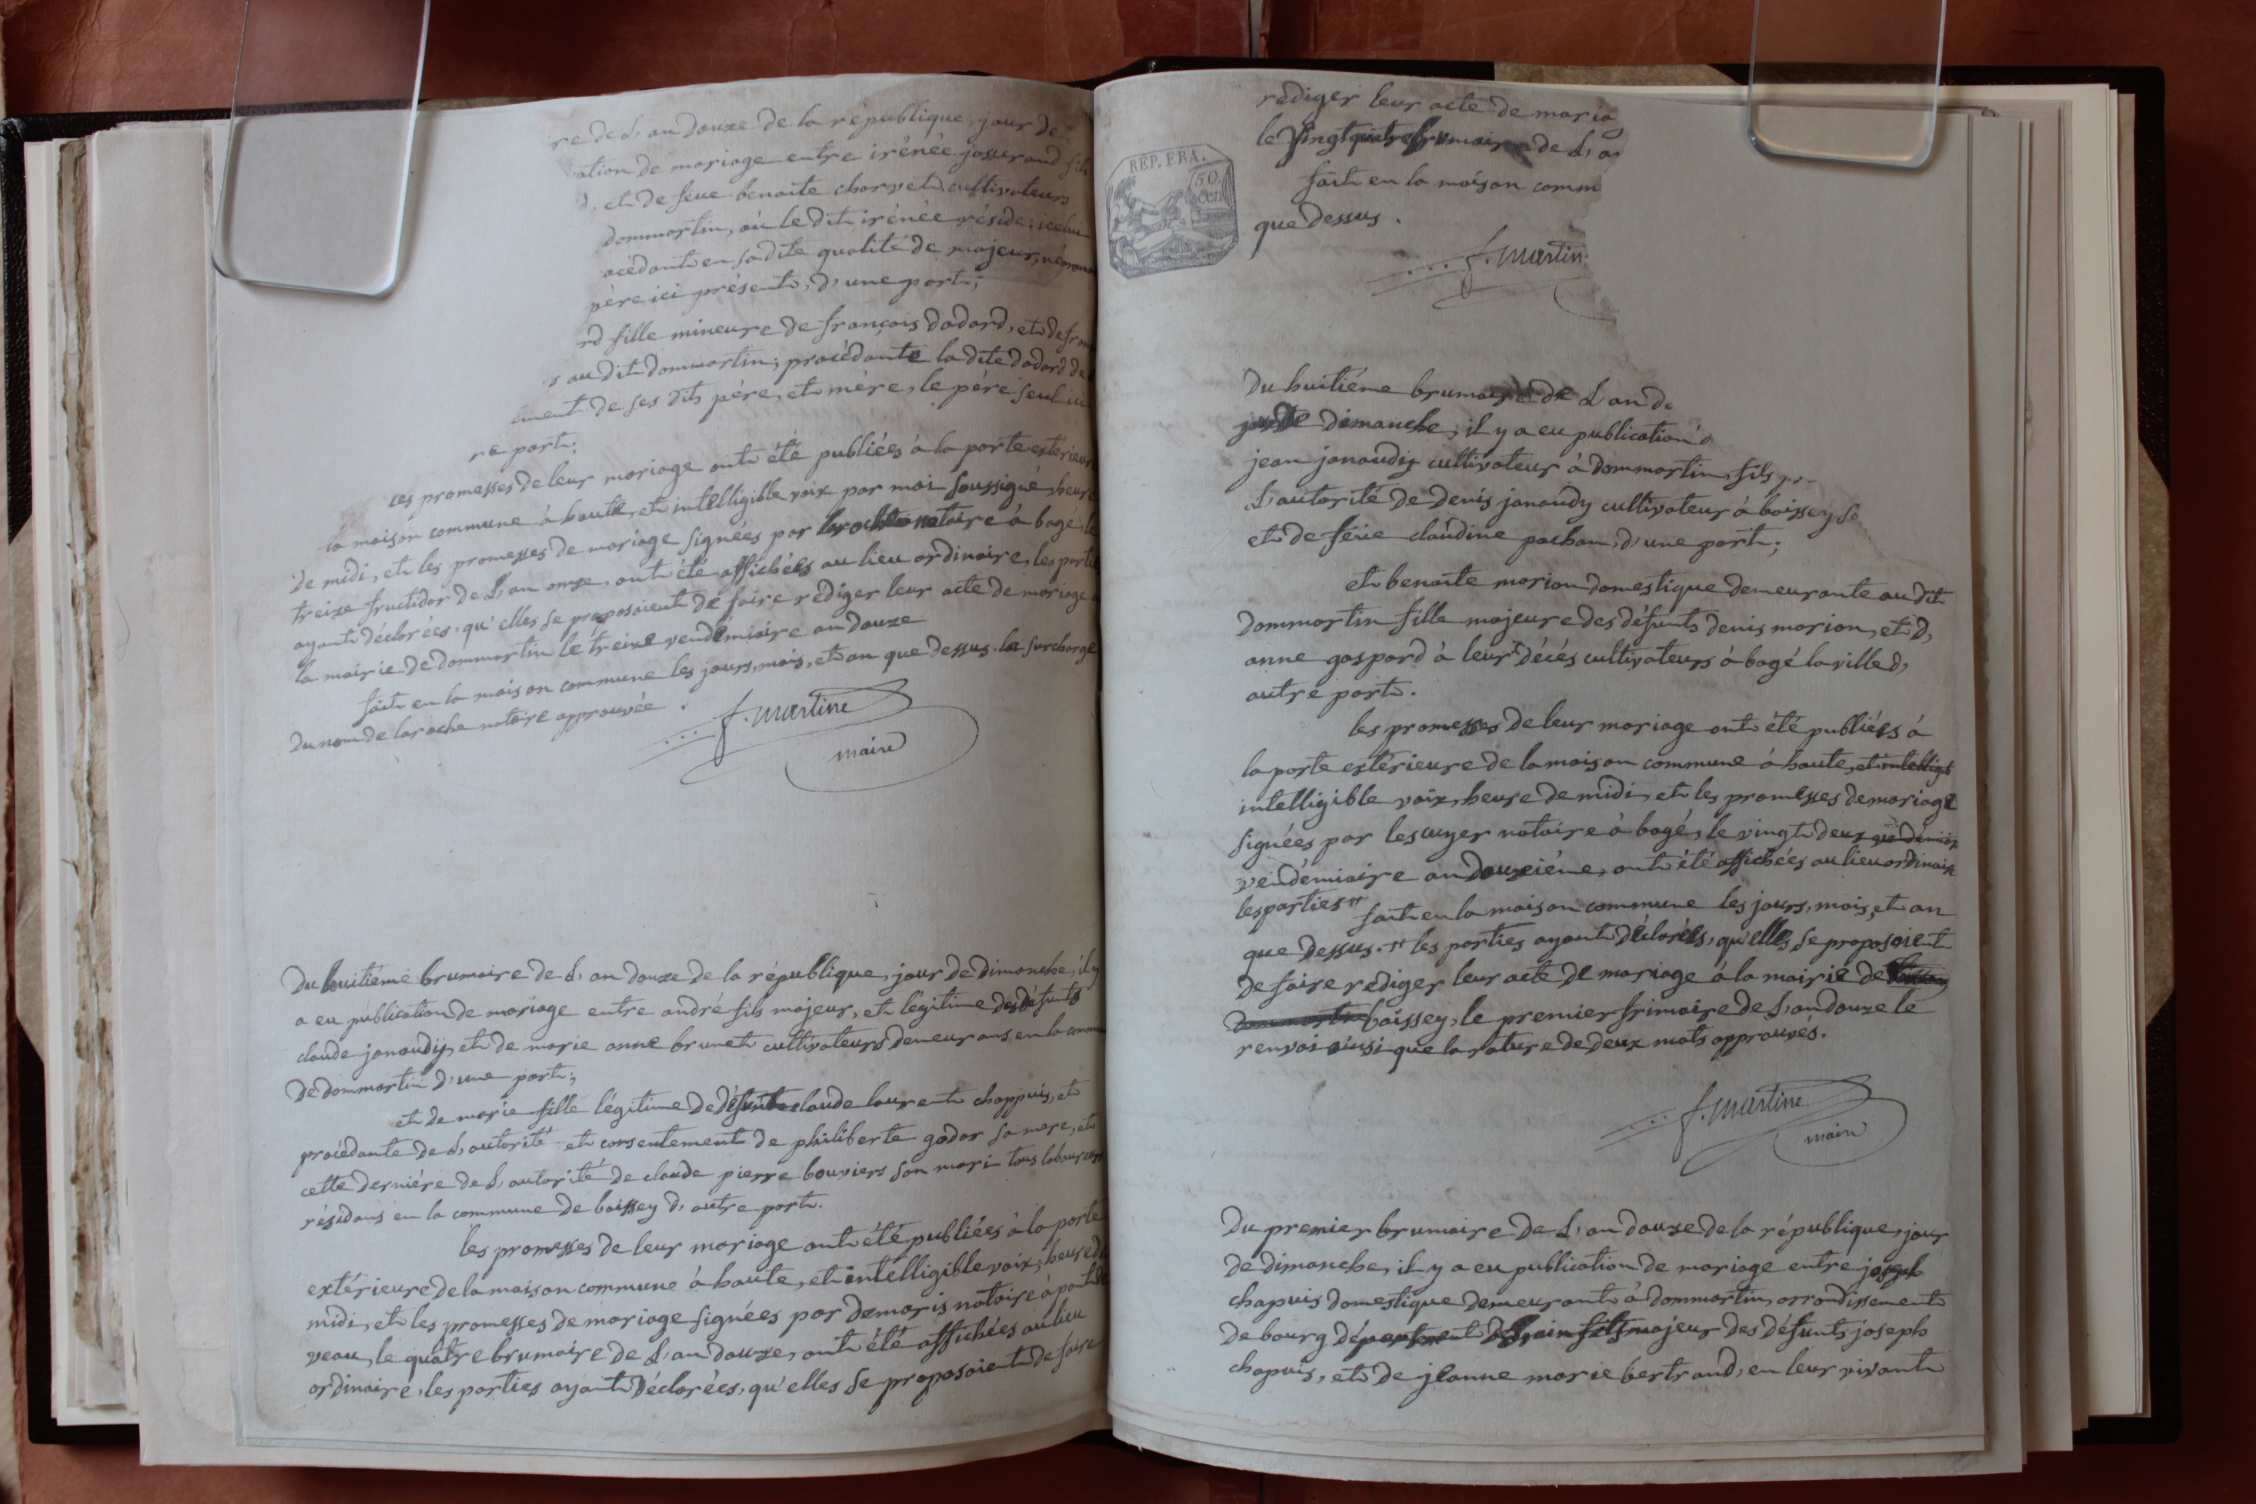 re de L'an douze de la république, jour de
ation de mariage entre irénée josserand fils
d, et de feue benoite charvet cultivateurs
dommartin, où le dit irénée réside; icelui
océdant en sa dite qualité de majeur,
père ici présent, d'une part;
rd fille mineure de françois dadard, et de
s au dit dommartin; procédante la dite dadard de
ement de ses dits père, et mère, le père seul
re part;
les promesses de leur mariage ont été publiées à la porte extérieure
la maison commune à haute, et intelligible voix par moi soussigné, heure
de midi, et les promesses de mariage signées par laroche notaire à bagé, le
treize fructidor de L'an onze, ont été affichées au lieu ordinaire, les parties
ayant déclarées, qu'elles se proposoient de faire rédiger leur acte de mariage à
la mairie de dommartin le treize vendémiaire an douze
fait en la maison commune les jours, mois, et an que dessus. la surcharge
du nom de laroche notaire approuvée.
f. martine
maire
Du huitième brumaire de L'an douze de la république, jour de dimanche, il y
a eu publication de mariage entre andré fils majeur, et légitime des défunts
claude janaudy, et de marie anne brunet cultivateurs demeurans en la commune
de dommartin d'une part;
et de marie fille légitime de défunt claude laurent chappuis, et
procédante de L'autorité et consentement de philiberte godar sa mère, et
cette dernière de L'autorité de claude pierre bouviers son mari tous laboureurs
résidans en la commune de boissey d'autre part.
les promesses de leur mariage ont été publiées à la porte
extérieure de la maison commune à haute, et intelligible voix, heure de
midi, et les promesses de mariage signées par demaris notaire à pont de
veau, le quatre brumaire de L'an douze, ont été affichées au lieu
ordinaire, les parties ayant déclarées, qu'elles se proposoient de faire
rédiger leur acte de mariag
le vingt quatre brumaire de L'an
fait en la maison comm
que dessus.
REP. FRA.
50 cen
f. martin
Du huitième brumaire de L'an do
jour de dimanche, il y a eu publication d
jean janaudy cultivateur à dommartin, fils pr
L'autorité de denis janaudy cultivateur à boissey
et de feue claudine pochon, d'une part;
et benoite morion domestique demeurante au dit
dommartin fille majeure des défunts denis morion, et d'
anne gaspard à leur décés cultivateurs à bagé la ville d'
autre part.
les promesses de leur mariage ont été publiées à
la porte extérieure de la maison commune à haute, et intelligi
intelligible voix, heure de midi, et les promesses de mariage
signées par lescuyer notaire à bagé, le vingt deux vendemiai
vendémiaire an douzième, ont été affichées au lieu ordinaire
les parties #
fait en la maison commune les jours, mois, et an
que dessus. # les parties ayant déclarées, qu'elles se proposoient
de faire rédiger leur acte de mariage à la mairie de
dommartin boissey, le premier frimaire de L'an douze le
renvoi ainsi que la rature de deux mots approuvés.
f. martine
maire
Du premier brumaire de L'an douze de la république, jour
de dimanche, il y a eu publication de mariage entre joseph
chapuis domestique demeurant à dommartin, arrondissement
de bourg département de L'ain fils majeur des défunts joseph
chapuis, et de jeanne marie bertrand, en leur vivant